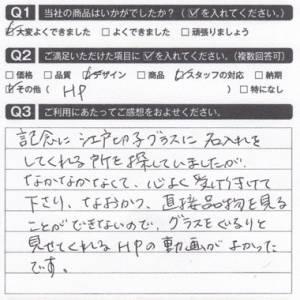 Q1 当社の商品はいかがでしたか？（☑を入れてください。）
☑大変よくできました □よくできました □頑張りましょう
Q2 ご満足いただけた項目に☑を入れてください。（複数回答可）
□価格 □品質 ☑デザイン □商品 ☑スタッフの対応 □納期
☑その他（ HP ） □特になし
Q3 ご利用にあたってご感想をおよせください。
記念に江戸切子グラスに名入れを
してくれる所を探していましたが、
なかなかなくて、心よく受け付けて
下さり、なおかつ、直接品物を見る
ことができないので、グラスをぐるりと
見せてくれるHPの動画がよかった
です。